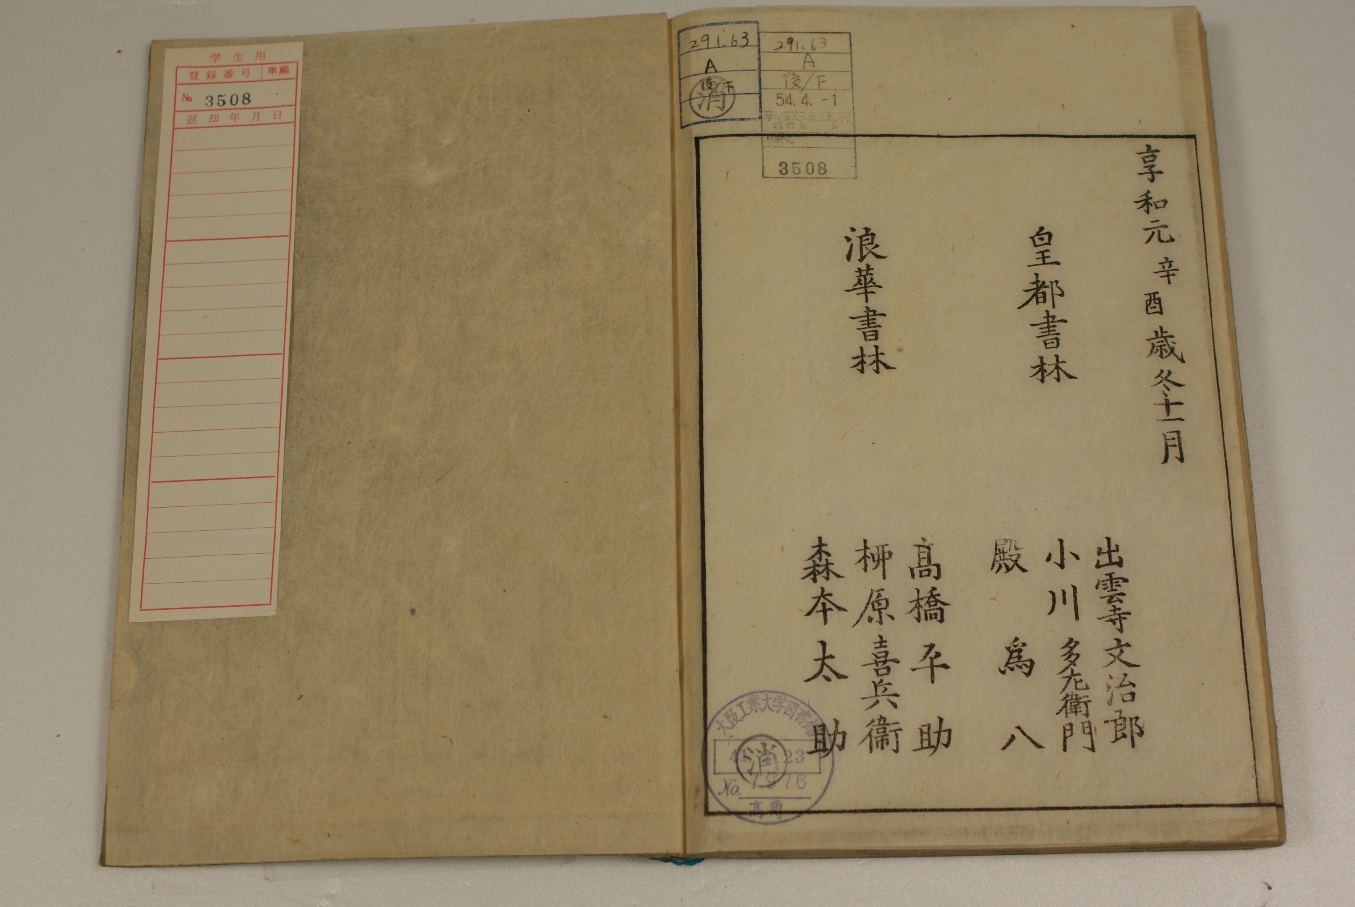 学生用
登録番号 単価
№ 3508
返却年月日
291.63
A
後/下
消
291.63
A
後/下
54.4.-1
3508
享和元辛酉歳冬十一月
皇都書林
出雲寺文治郎
小川多左衛門
殿為八
浪華書林
高橋平助
柳原喜兵衛
森本太助
大阪工業大学図書館
消
23
No. 7976
高専